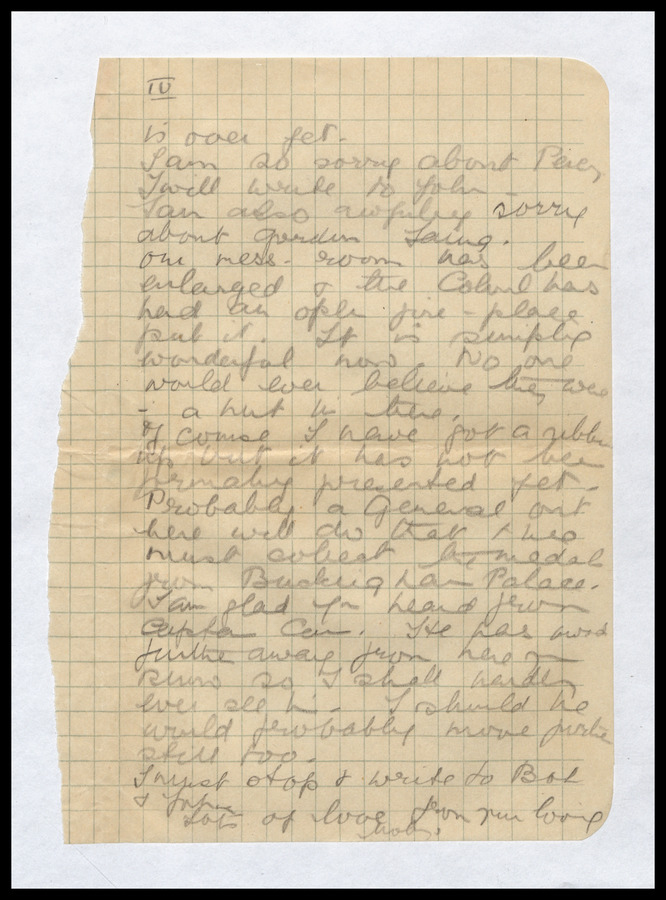 IV
is over yet.
I am so sorry about Percy
I will write to John -
I am also awfully sorry
about Gordon Laing.
Our mess-room has been
enlarged & the Colonel has
had an open fire-place
put it. It is simply
wonderful now. No one
would ever believe they were
- a hut in there.
Of course I have got a ribbon
up but it has not been
formally presented yet.
Probably a General out
here will do that & two
must collect the medal
from Buckingham Palace.
I am glad you heard from
Captain Carr. He has moved
further away from here you
know so I shall hardly
ever see him. I should he
would probably move further
still too.
I must stop & write to Bob
& John
Lots of love from your loving